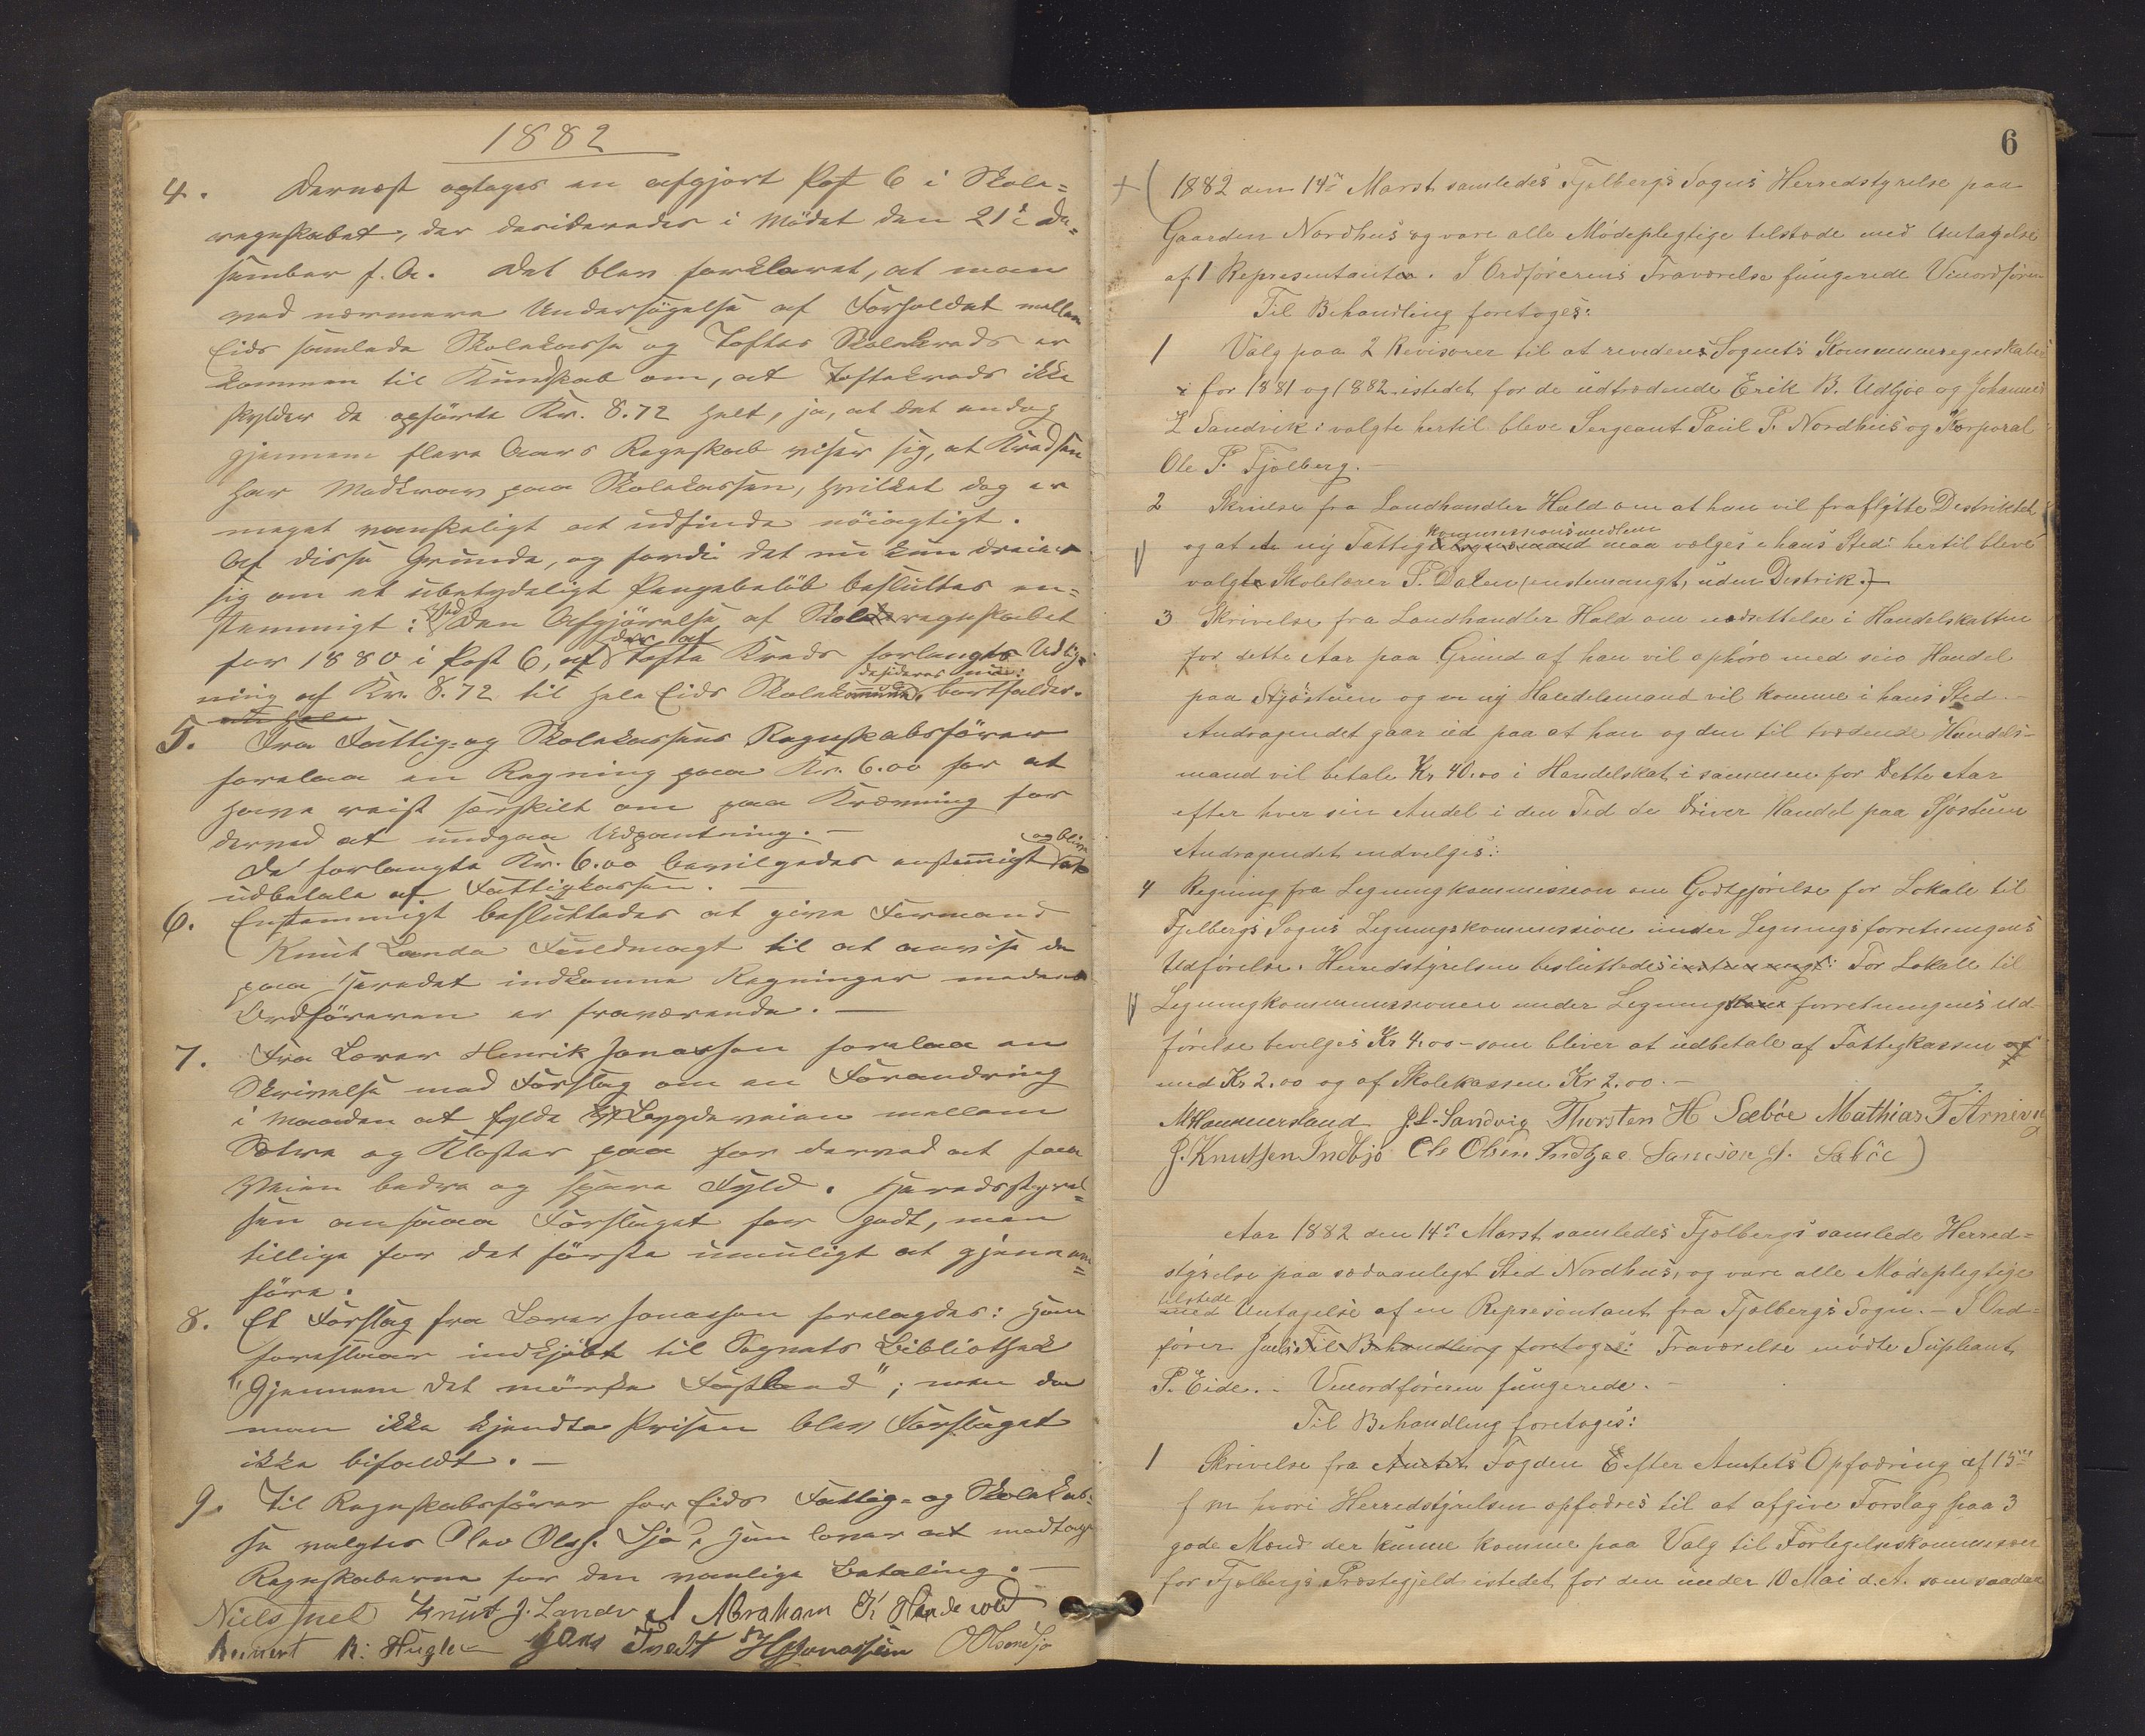 1882
4. Dernæst optoges en afgjort Post 6 i Skole=
regnskabet, der desideredes i Mödet den 21de De=
sember f. A. Det blev forklaret, at man
ved nærmere Undersögelse af Forholdet mellem
Eids samlede Skolekasse og Toftes Skolekreds er
kommen til Kundskab om, at Toftekreds ikke
skylder de opförte Kr. 8.72 helt, ja, at det endog
gjennem flere Aars Regnskab viser sig, at Kredsen
har Modkrav paa Skolekassen, hvilket dog er
meget vanskeligt at udfinde nöiagtigt.
Af disse Grunde, og fordi det nu kun dreier
sig om et ubetydeligt Pengebelöb besluttes en=
stemmigt: Ved den Afgjörelse af Skoleregnskabet
for 1880 i Post 6, der af Tofte Kreds forlanges Udlig=
ning af Kr. 8.72 til hele Eids Skolekommune, bortfalder.
5. Fra Fattig- og Skolekassens Regnskabsförer
forelaa en Regning paa Kr. 6.00 for at
have reist særskilt om paa Krævning for
derved at undgaa Udpantning. —
De forlangte Kr. 6.00 bevilgedes enstemmigt og bliver at
udbetale af Fattigkassen. —
6. Enstemmigt besluttedes at give Formand
Knut Landa Fuldmagt til at anvise de
paa Heredet indkomne Regninger medens
Ordföreren er fraværende. —
7. Fra Lærer Henrik Jonassen forelaa en
Skrivelse med Forslag om en Forandring
i Maaden at fylde Bygdeveien mellem
Sætre og Kloster paa for derved at faa
Veien bedre og spare Fyld. Heredsstyrel=
sen ansaaa Forslaget for godt, men
tillige for det förste umuligt at gjennem=
före.
8. Et Forslag fra Lærer Jonassen forelagdes: Han
foreslaar indkjöbt til Sognets Bibliothek
"Gjennem det mörke Fastland"; men da
man ikke kjendte Prisen blev Forslaget
ikke bifaldt. —
9. Til Regnskabsförer for Eids Fattig- og Skolekas=
se valgtes Olav Ols. Sjo, Han lover at modtage
Regnskaberne for den vanlige Betaling. —
Niels Juel Knut J. Landa Abraham K Handeland
Reinert R. Hugle Hans Tvedt H Jonassen O Olsen Sjo
6
1882 den 14de Marst samledes Fjelbergs Sogns Herredstyrelse paa
Gaarden Nordhus og vare alle Mödepligtige tilstede med Untagelse
af 1 Representant. I Ordförerens Fraværelse fungerede Viceordförer
Til Behandling foretoges:
1 Valg paa 2 Revisorer til at revidere Sognets Kommuneregnskaber
for 1881 og 1882 istedet for de udtrædende Erik B. Udbjoe og Johannes
L Sandvik: valgte hertil bleve Sergeant Paul P. Nordhus og Korporal
Ole P. Fjelberg. —
2 Skrivelse fra Landhandler Hald om at han vil fraflytte Destriktet
og at en ny Fattigkommissionsmedlem maa vælges i hans Sted: hertil bleve
valgt Skolelærer P. Dalen (enstemmigt, uden Distrik.)
3 Skrivelse fra Landhandler Hald om nedsettelse i Handelskatten
for dette Aar paa Grund af han vil ophöre med sin Handel
paa Sjöstuen og en ny Handelsmand vil komme i hans Sted. —
Andragendet gaar ud paa at han og den til trædende Handels=
mand vil betale Kr 40.00 i Handelskat i sammen for Dette Aar
efter hver sin Andel i den Tid de driver Handel paa Sjöstuen
Andragendet indvilges:
4 Regning fra Legningkommission om Godtgjörelse for Lokale til
Fjelbergs Sogns Legningskommission under Legningsforretningens
Udförelse. Herredstyrelsen besluttedes enstemmigt: For Lokale til
Legningkommissionen under Legnings forretningens Ud=
förelse bevilges Kr 4.00 – som bliver at udbetale af Fattigkassen
med Kr 2.00 og af Skolekassen Kr 2.00. —
M Hammersland J. L. Sandvig Thorsten H Sæböe Mathias T. Arnevig
J. Knutsen Indbjo Ole Olsen Indbjoe Samson J. Sæböe)
Aar 1882 den 14de Marst samledes Fjelbergs samlede Herred=
styrelse paa sædvanligt Sted Nordhus, og vare alle Mödepligtige
tilstede med Untagelse af en Representant fra Fjelbergs Sogn. — I Ord=
förer Juels Til Behandling foretoges: Fraværelse mödte Supleant
P. Eide. – Viceordföreren fungerede. —
Til Behandling foretoges:
1 Skrivelse fra Amtet Fogden Efter Amtets Opfodring af 15de
f m hvori Herredstyrelsen opfodres til at afgive Forslag paa 3
gode Mænd der kunne komme paa Valg til Forligelseskommissær
for Fjelbergs Præstegjeld istedet for den under 10 Mai d. A. som saadan